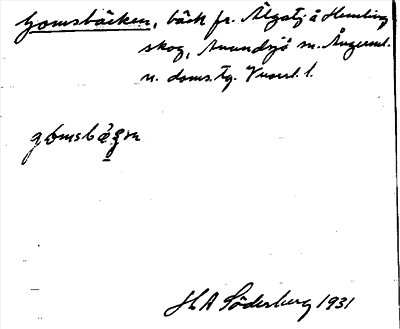 Gomsbäcken, bäck fr. Älgatj. å Hemling
skog, Anundsjö sn. Ångerml.
n. doms. tg. Vnorrl. l.
gomsbäçɛn
H A Söderberg 1931